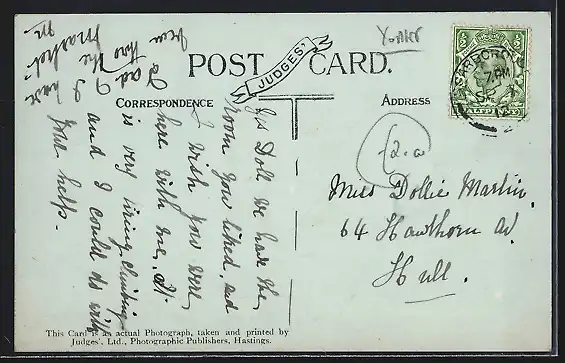 Yorks
POST CARD.
JUDGES'
CORRESPONDENCE
ADDRESS
SCARBORO
7. PM
Yes Doll we have the
room you liked, and
I wish you were
here with me. It
is very tiring climbing
and I could do with
your help.
I have
Dad & the Market
Miss Dollie Martin
64 Hawthorn Av
Hull.
This Card is an actual Photograph, taken and printed by
Judges', Ltd., Photographic Publishers, Hastings.